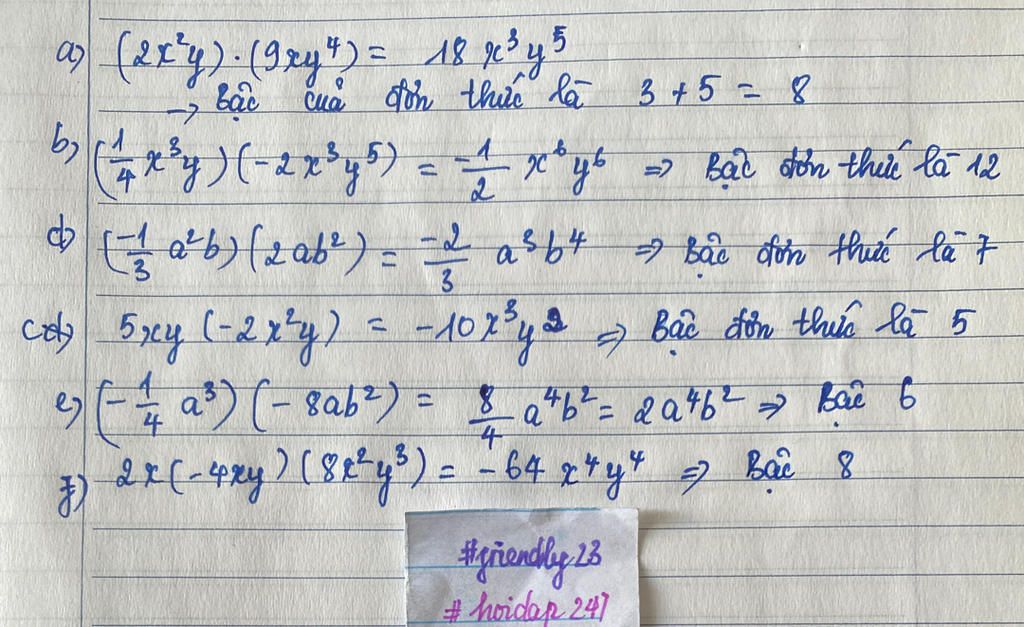 a) (2x²y).(9xy⁴) = 18 x³y⁵
→ Bậc của đơn thức là 3 + 5 = 8
b) (1/4 x³y)(-2x³y⁵) = -1/2 x⁶y⁶ => Bậc đơn thức là 12
d) (-1/3 a²b)(2ab²) = -2/3 a³b⁴ => Bậc đơn thức là 7
c) 5xy (-2x²y) = -10x³y² => Bậc đơn thức là 5
e) (-1/4 a³) (-8ab²) = 8/4 a⁴b² = 2a⁴b² => Bậc 6
f) 2x(-4xy)(8x²y³) = -64 x⁴y⁴ => Bậc 8
#friendly23
#hoidap247